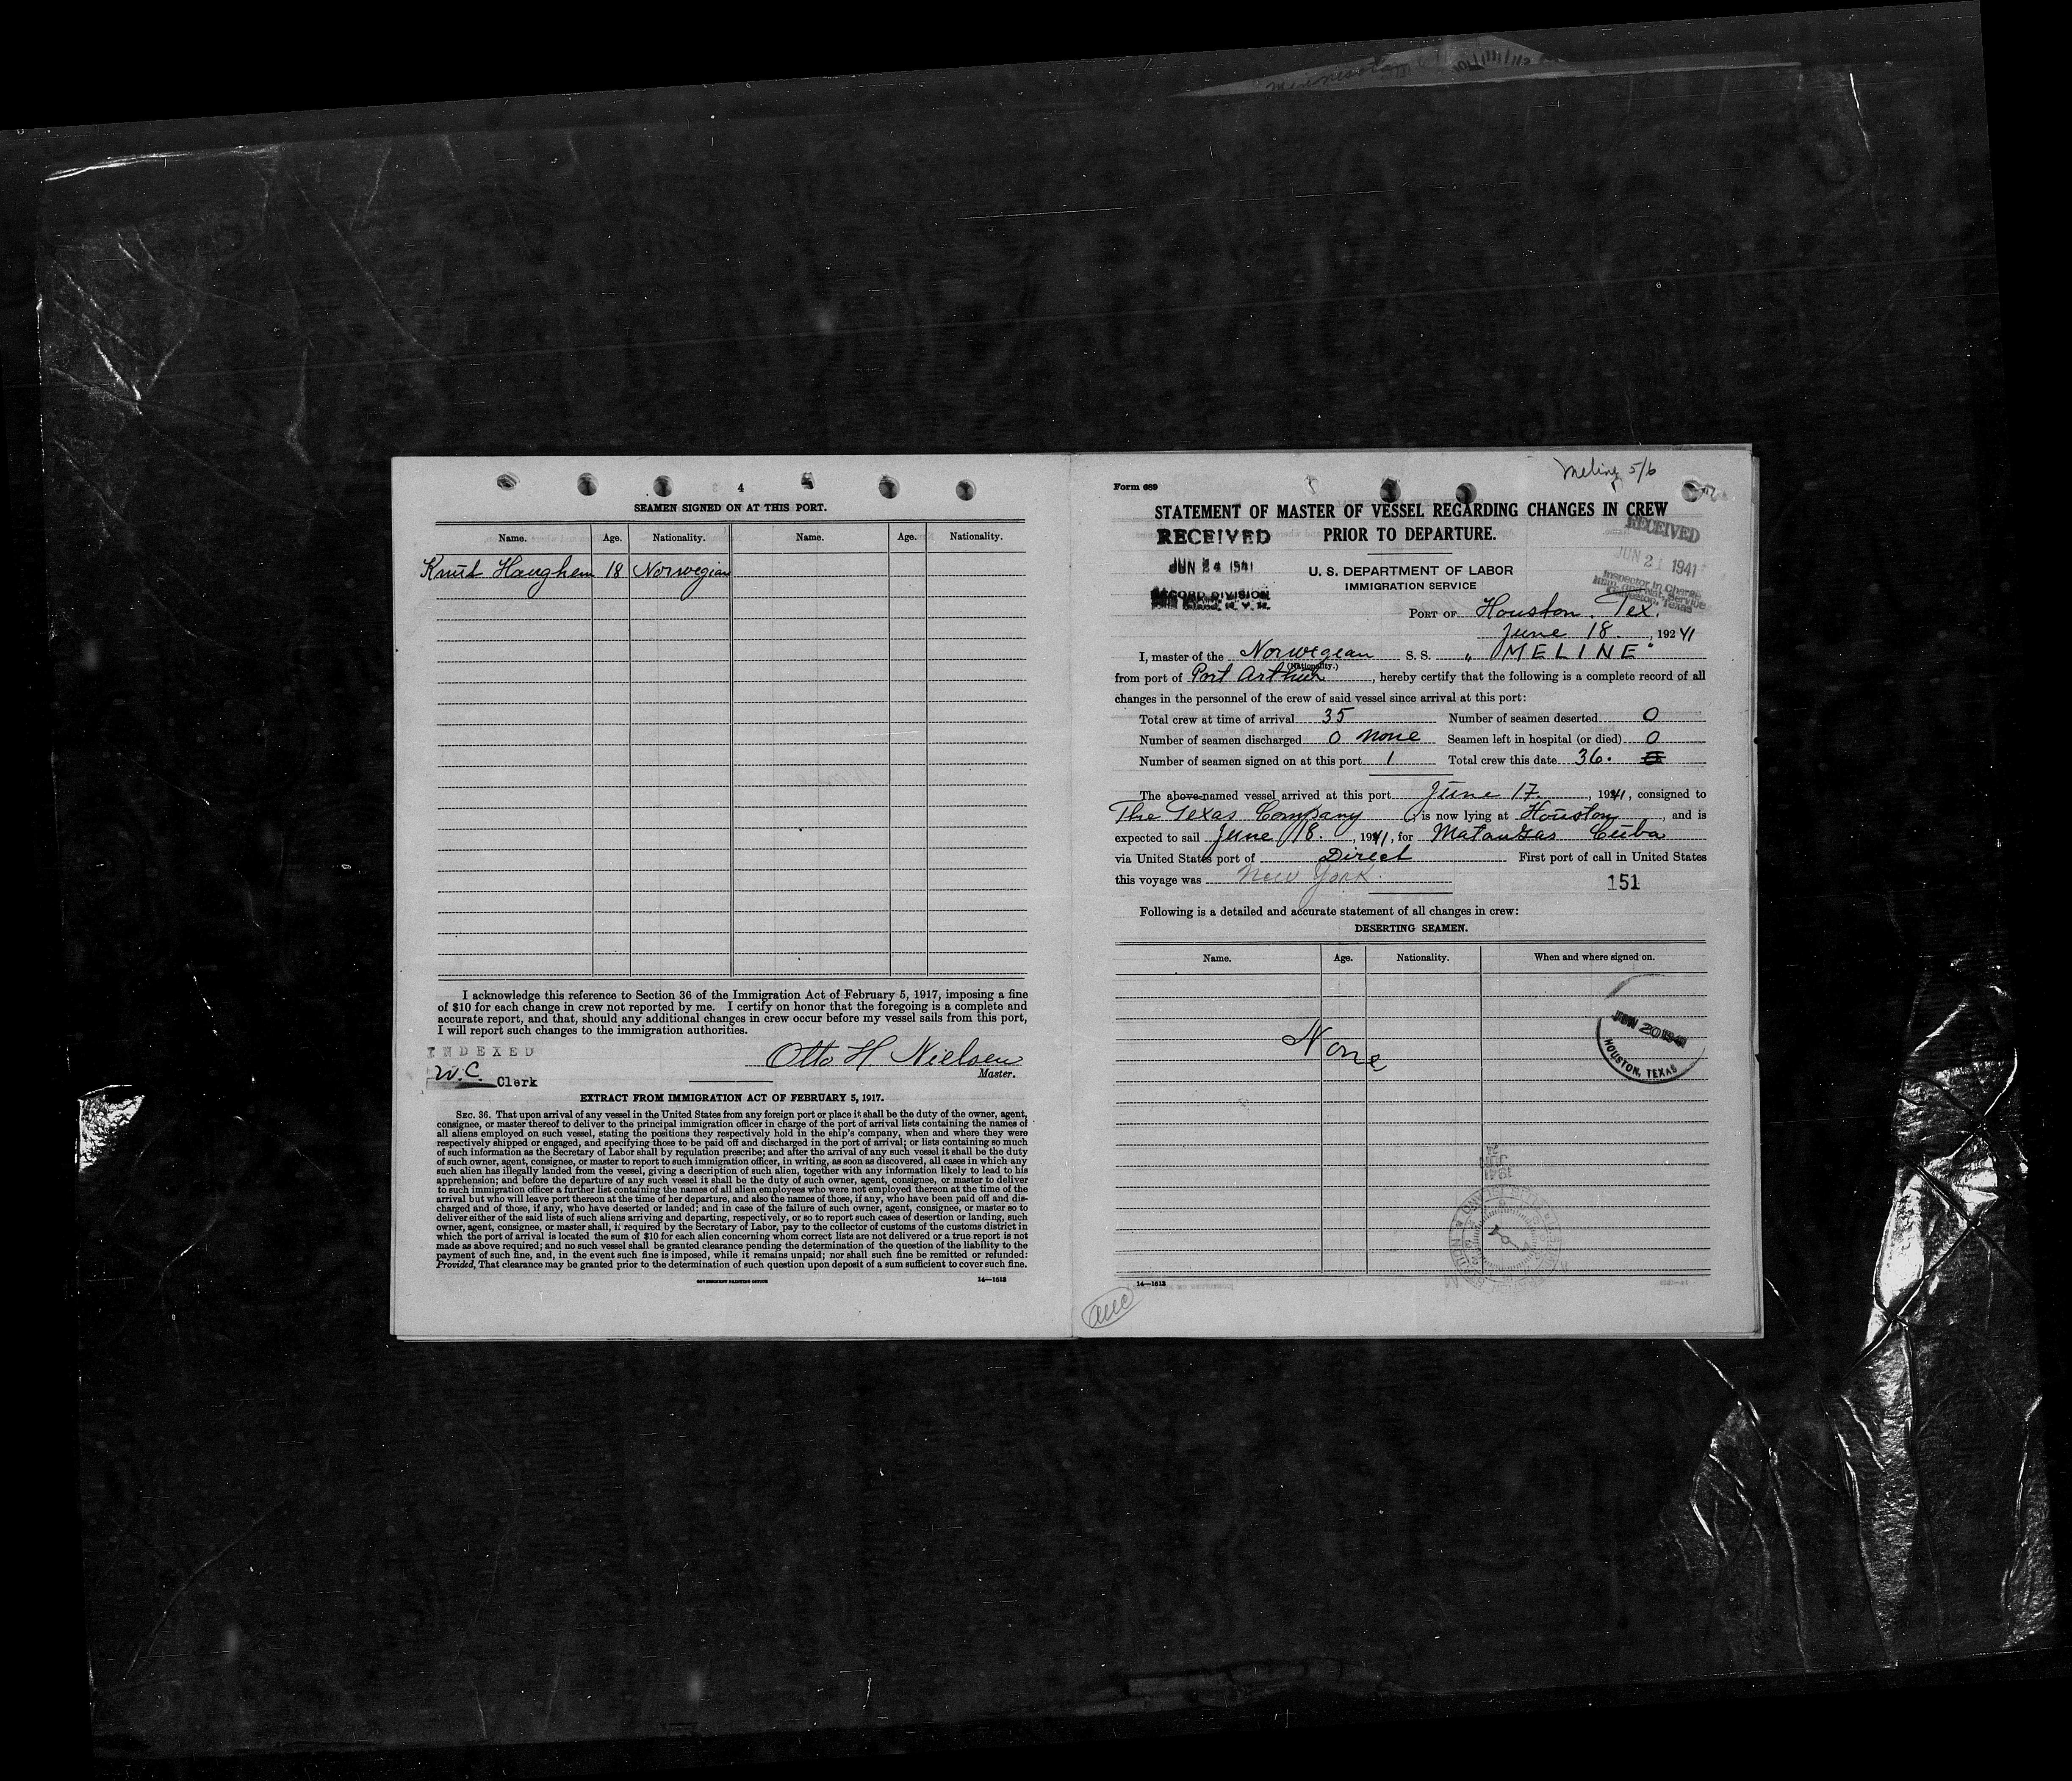 4
SEAMEN SIGNED ON AT THIS PORT.
Name. Age. Nationality. Name. Age. Nationality.
Knut Haughem 18 Norwegian
I acknowledge this reference to Section 36 of the Immigration Act of February 5, 1917, imposing a fine
of $10 for each change in crew not reported by me. I certify on honor that the foregoing is a complete and
accurate report, and that, should any additional changes in crew occur before my vessel sails from this port,
I will report such changes to the immigration authorities.
INDEXED
Otto H. Nielsen
W.C. Clerk
Master.
EXTRACT FROM IMMIGRATION ACT OF FEBRUARY 5, 1917.
SEC. 36. That upon arrival of any vessel in the United States from any foreign port or place it shall be the duty of the owner, agent,
consignee, or master thereof to deliver to the principal immigration officer in charge of the port of arrival lists containing the names of
all aliens employed on such vessel, stating the positions they respectively hold in the ship's company, when and where they were
respectively shipped or engaged, and specifying those to be paid off and discharged in the port of arrival; or lists containing so much
of such information as the Secretary of Labor shall by regulation prescribe; and after the arrival of any such vessel it shall be the duty
of such owner, agent, consignee, or master to report to such immigration officer, in writing, as soon as discovered, all cases in which any
such alien has illegally landed from the vessel, giving a description of such alien, together with any information likely to lead to his
apprehension; and before the departure of any such vessel it shall be the duty of such owner, agent, consignee, or master to deliver
to such immigration officer a further list containing the names of all alien employees who were not employed thereon at the time of the
arrival but who will leave port thereon at the time of her departure, and also the names of those, if any, who have been paid off and dis-
charged and of those, if any, who have deserted or landed; and in case of the failure of such owner, agent, consignee, or master so to
deliver either of the said lists of such aliens arriving and departing, respectively, or so to report such cases of desertion or landing, such
owner, agent, consignee, or master shall, if required by the Secretary of Labor, pay to the collector of customs of the customs district in
which the port of arrival is located the sum of $10 for each alien concerning whom correct lists are not delivered or a true report is not
made as above required; and no such vessel shall be granted clearance pending the determination of the question of the liability to the
payment of such fine, and, in the event such fine is imposed, while it remains unpaid; nor shall such fine be remitted or refunded:
Provided, That clearance may be granted prior to the determination of such question upon deposit of a sum sufficient to cover such fine.
GOVERNMENT PRINTING OFFICE 14—1613
Meline 5/6
Form 689
STATEMENT OF MASTER OF VESSEL REGARDING CHANGES IN CREW
PRIOR TO DEPARTURE.
RECEIVED
JUN 24 1941
RECORD DIVISION
RECEIVED
JUN 21 1941
Inspector in Charge
U. S. DEPARTMENT OF LABOR
IMMIGRATION SERVICE
PORT OF Houston, Tex.
June 18, 19241
I, master of the Norwegian S. S. "MELINE"
(Nationality.)
from port of Port Arthur, hereby certify that the following is a complete record of all
changes in the personnel of the crew of said vessel since arrival at this port:
Total crew at time of arrival 35 Number of seamen deserted 0
Number of seamen discharged 0 none Seamen left in hospital (or died) 0
Number of seamen signed on at this port 1 Total crew this date 36.
The above-named vessel arrived at this port June 17, 1941, consigned to
The Texas Company, is now lying at Houston, and is
expected to sail June 18., 1941, for Matanzas Cuba
via United States port of Direct First port of call in United States
this voyage was New York.
151
Following is a detailed and accurate statement of all changes in crew:
DESERTING SEAMEN.
Name. Age. Nationality. When and where signed on.
None
JUN 20 1941
HOUSTON, TEXAS
1941
JUN
24
14—1613